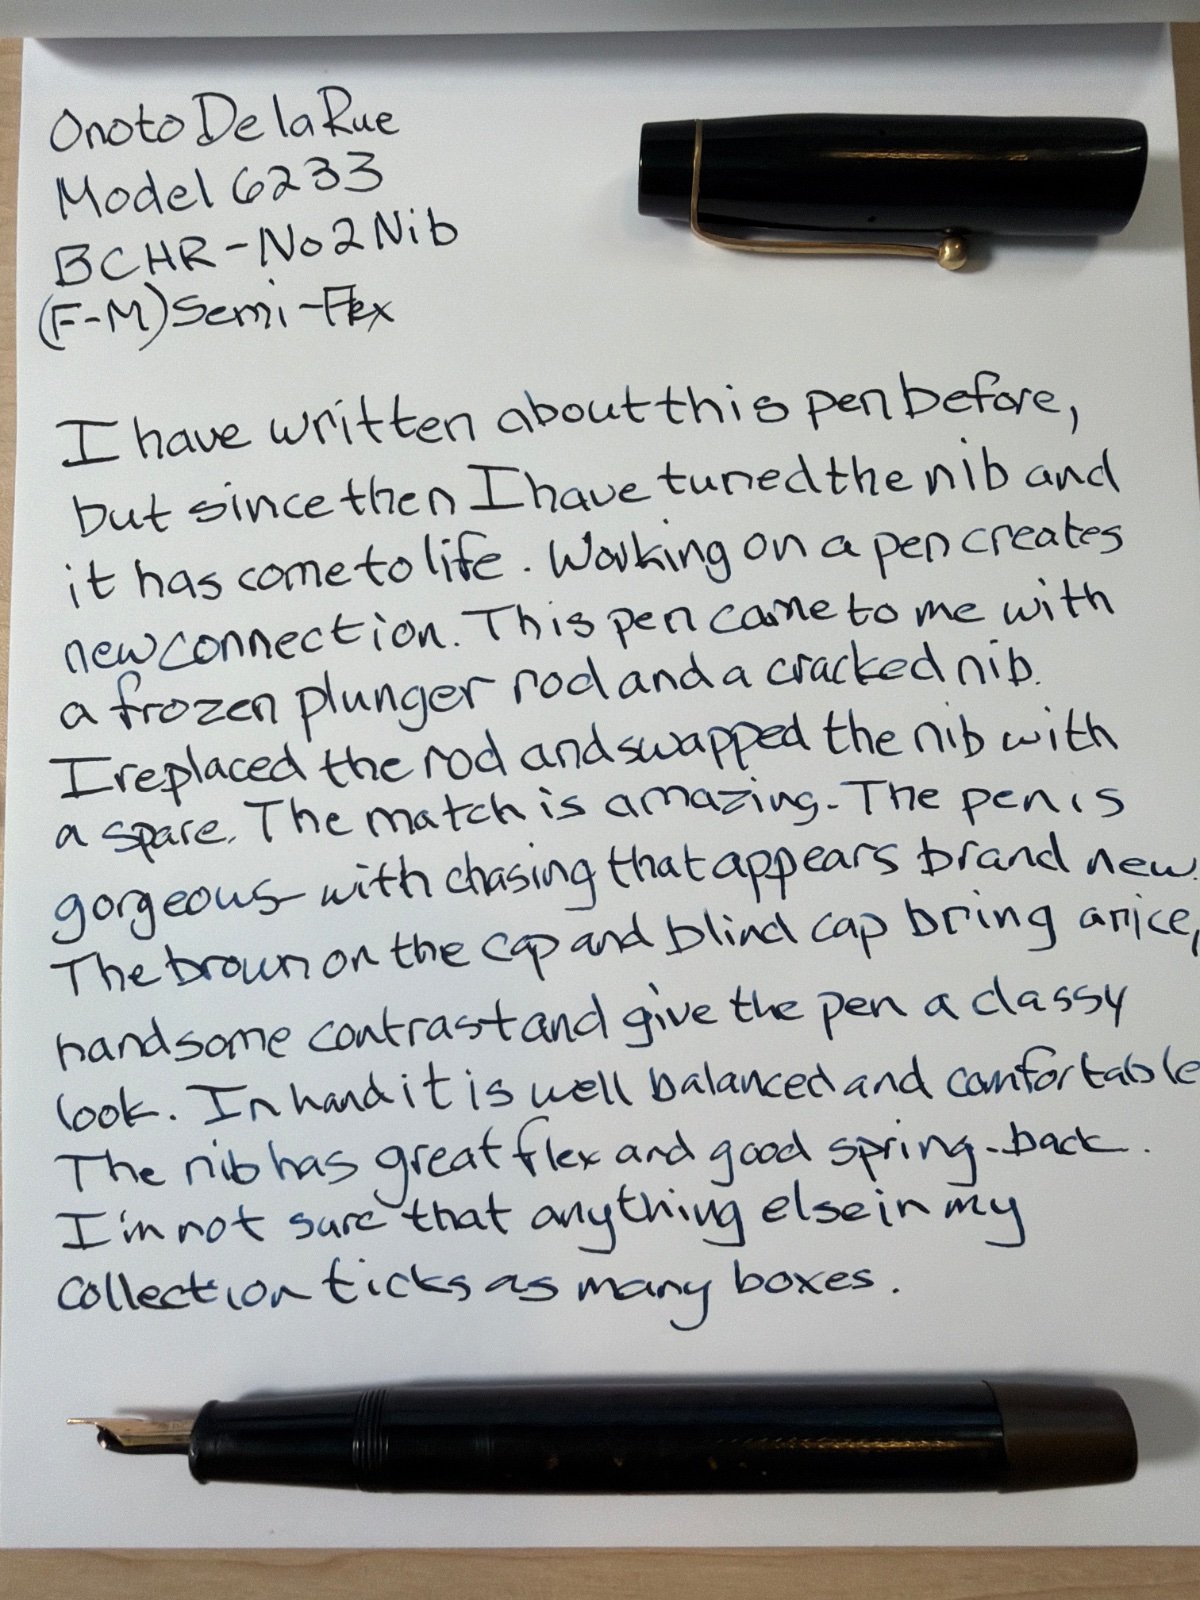 Onoto De la Rue
Model 6233
BCHR - No 2 Nib
(F-M) Semi-Flex
I have written about this pen before,
but since then I have tuned the nib and
it has come to life. Working on a pen creates
new connection. This pen came to me with
a frozen plunger rod and a cracked nib.
I replaced the rod and swapped the nib with
a spare. The match is amazing. The pen is
gorgeous with chasing that appears brand new.
The brown on the cap and blind cap bring a nice,
handsome contrast and give the pen a classy
look. In hand it is well balanced and comfortable
The nib has great flex and good spring-back.
I'm not sure that anything else in my
collection ticks as many boxes.